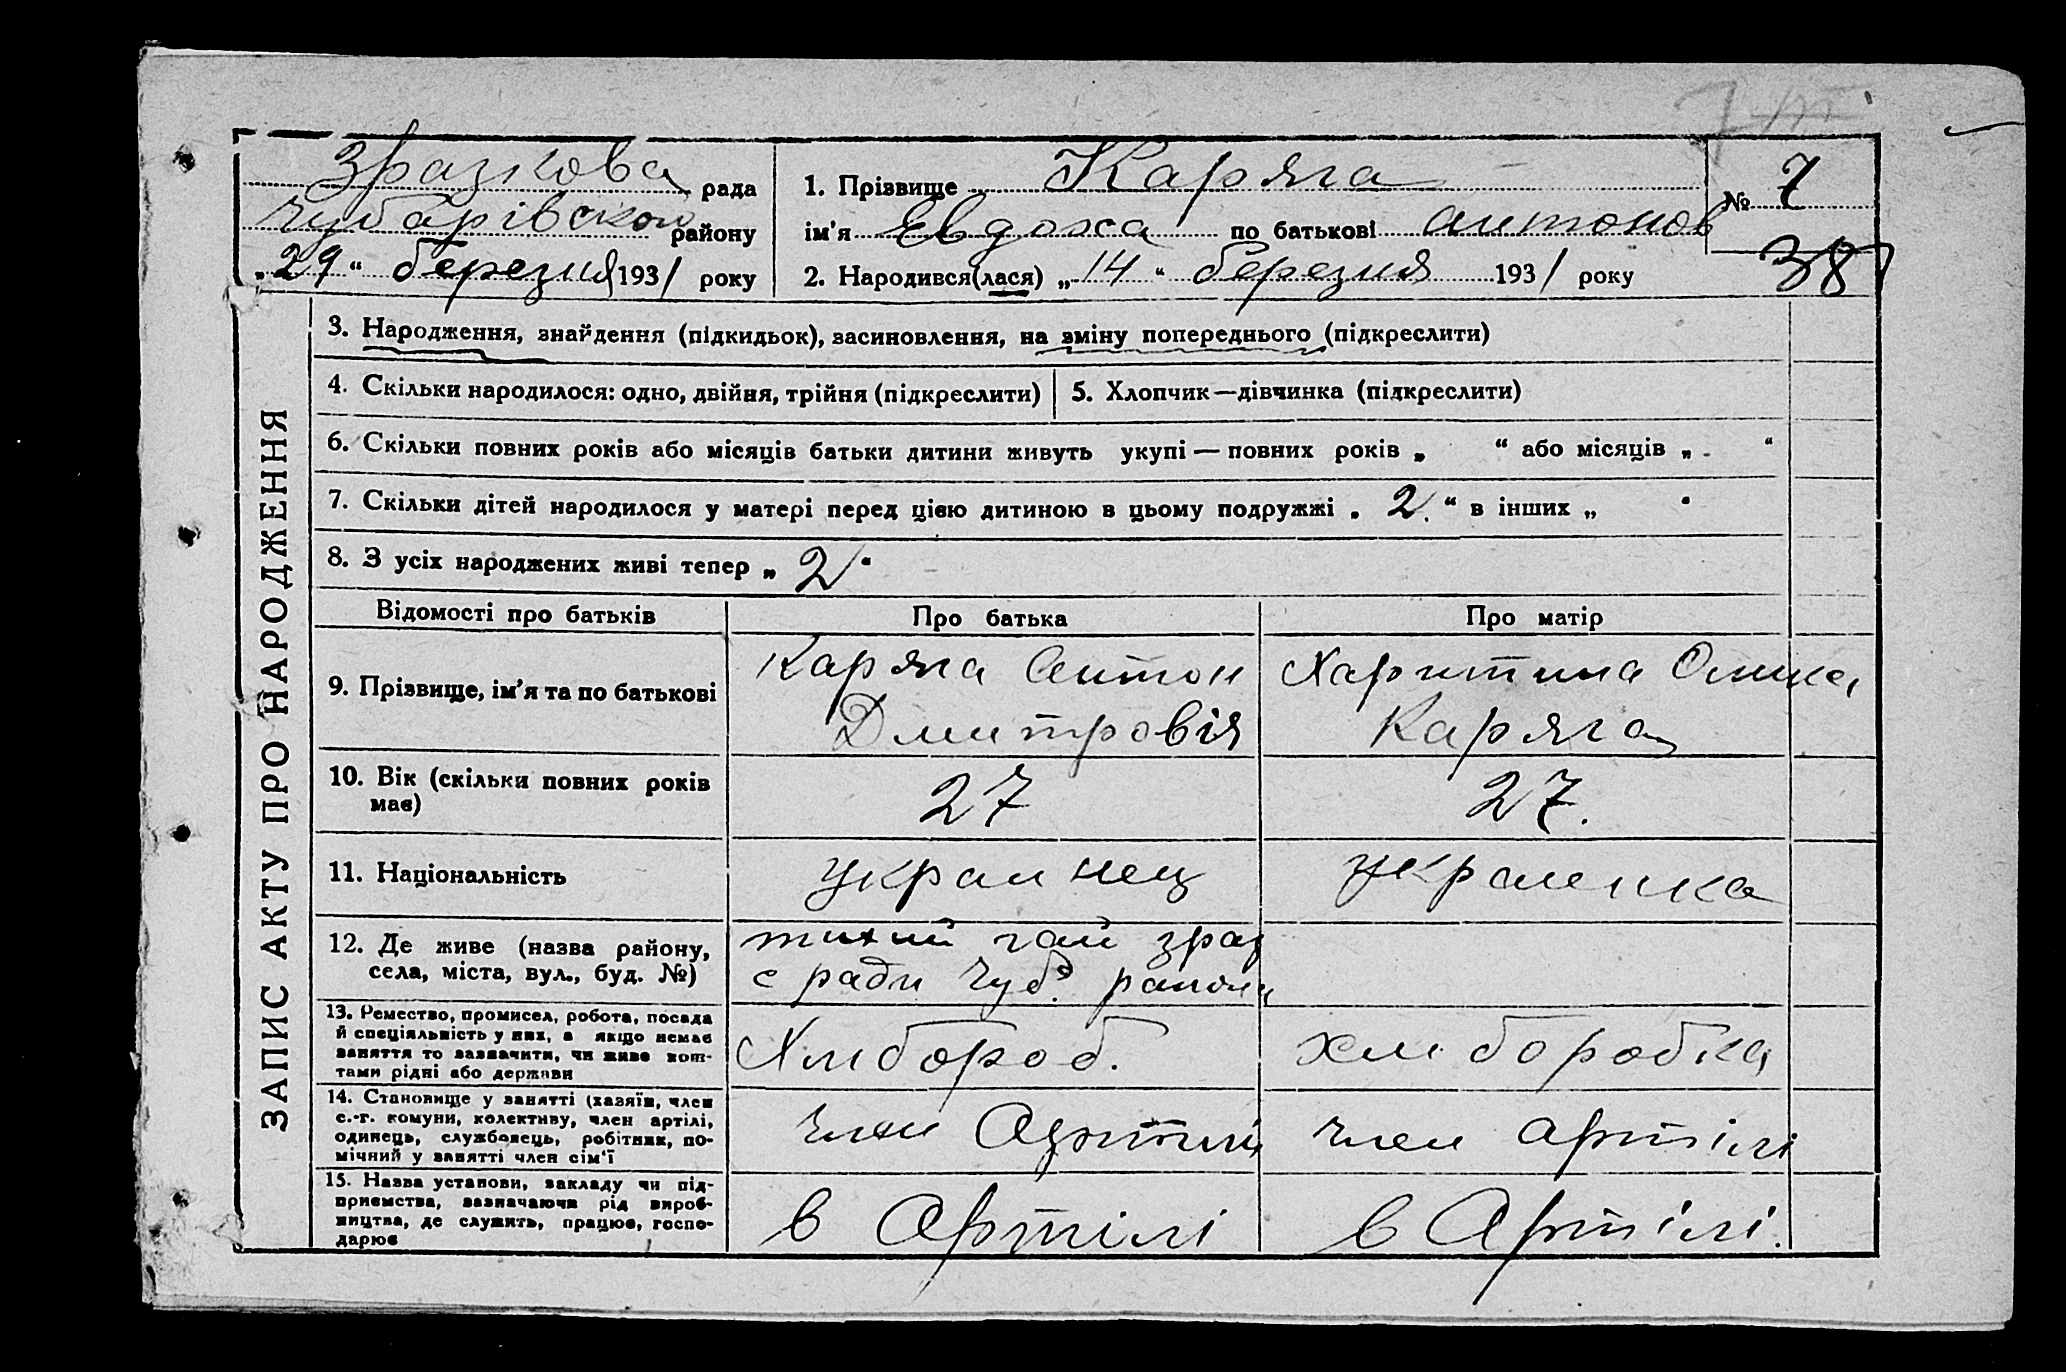 Зразкова рада
Чубарівського району
„29“ березня 1931 року
1. Прізвище Каряга
ім'я Евдоха по батькові антонов
2. Народився(лася) „14“ березня 1931 року
№ 7
38
ЗАПИС АКТУ ПРО НАРОДЖЕННЯ
3. Народження, знайдення (підкидьок), засиновлення, на зміну попереднього (підкреслити)
4. Скільки народилося: одно, двійня, трійня (підкреслити)
5. Хлопчик—дівчинка (підкреслити)
6. Скільки повних років або місяців батьки дитини живуть укупі — повних років „ “ або місяців „ “
7. Скільки дітей народилося у матері перед цією дитиною в цьому подружжі „ 2. “ в інших „ “
8. З усіх народжених живі тепер „ 2 “
Відомості про батьків
Про батька
Про матір
9. Прізвище, ім'я та по батькові
Каряга Антон
Дмитровія
Харитина
Каряга
10. Вік (скільки повних років
має)
27
27.
11. Національність
украинец
украенка
12. Де живе (назва району,
села, міста, вул., буд. №)
тихий гай зраз
с ради Чуб. райони
13. Ремество, промисел, робота, посада
й спеціяльність у них, а якщо немає
заняття то зазначити, чи живе кош-
тами рідні або держави
Хлибороб.
хлиборобка
14. Становище у занятті (хазяїн, член
с.-г. комуни, колективу, член артілі,
одинець, службовець, робітник, по-
мічний у занятті член сім'ї
член Артилі
член артілі
15. Назва установи, закладу чи під-
приємства, зазначаючи рід вироб-
ництва, де служить, працює, госпо-
дарює
в Артілі
в Артілі.